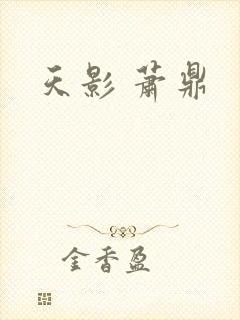 天影 萧鼎
金香盈